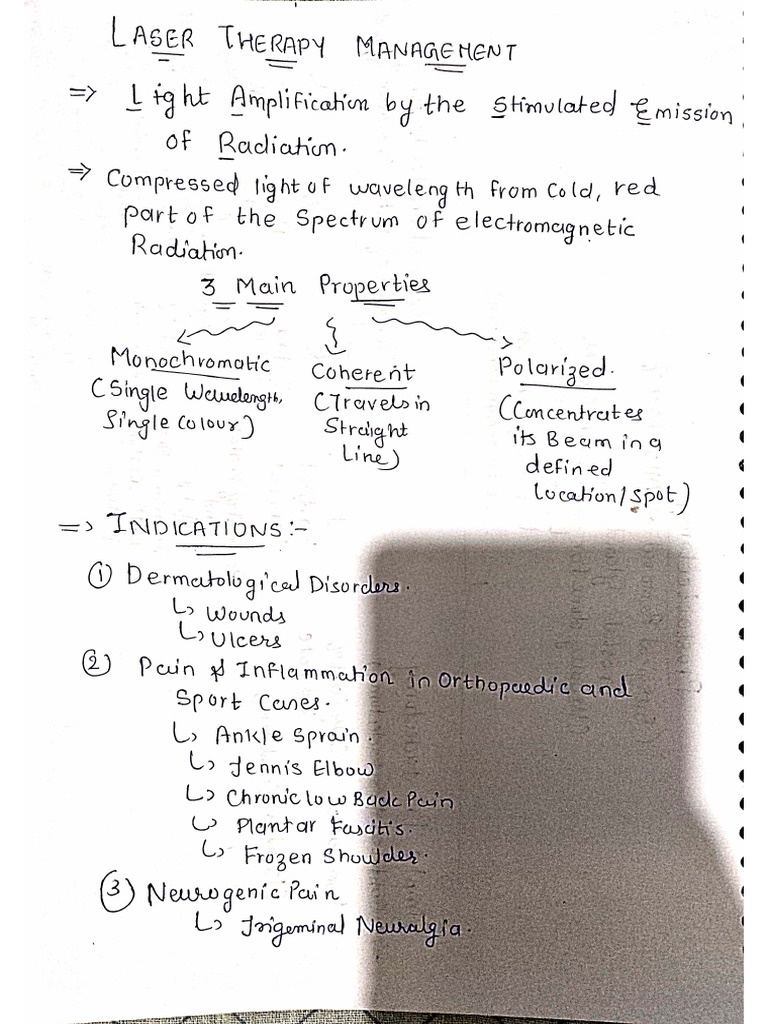 LASER THERAPY MANAGEMENT
=> Light Amplification by the Stimulated Emission
of Radiation.
=> Compressed light of wavelength from Cold, red
part of the Spectrum of electromagnetic
Radiation.
3 Main Properties
Monochromatic
(Single Wavelength,
Single Colour)
Coherent
(Travels in
Straight
Line)
Polarized.
(Concentrates
its Beam in a
defined
location/spot)
=> INDICATIONS:-
① Dermatological Disorders.
↳ Wounds
↳ Ulcers
② Pain & Inflammation in Orthopaedic and
Sport Cases.
↳ Ankle Sprain.
↳ Tennis Elbow
↳ Chronic low Back Pain
↳ Plantar Fascitis.
↳ Frozen Shoulder.
③ Neurogenic Pain
↳ Trigeminal Neuralgia.